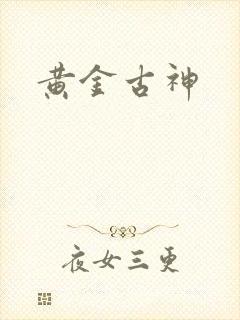 黄金古神
夜女三更